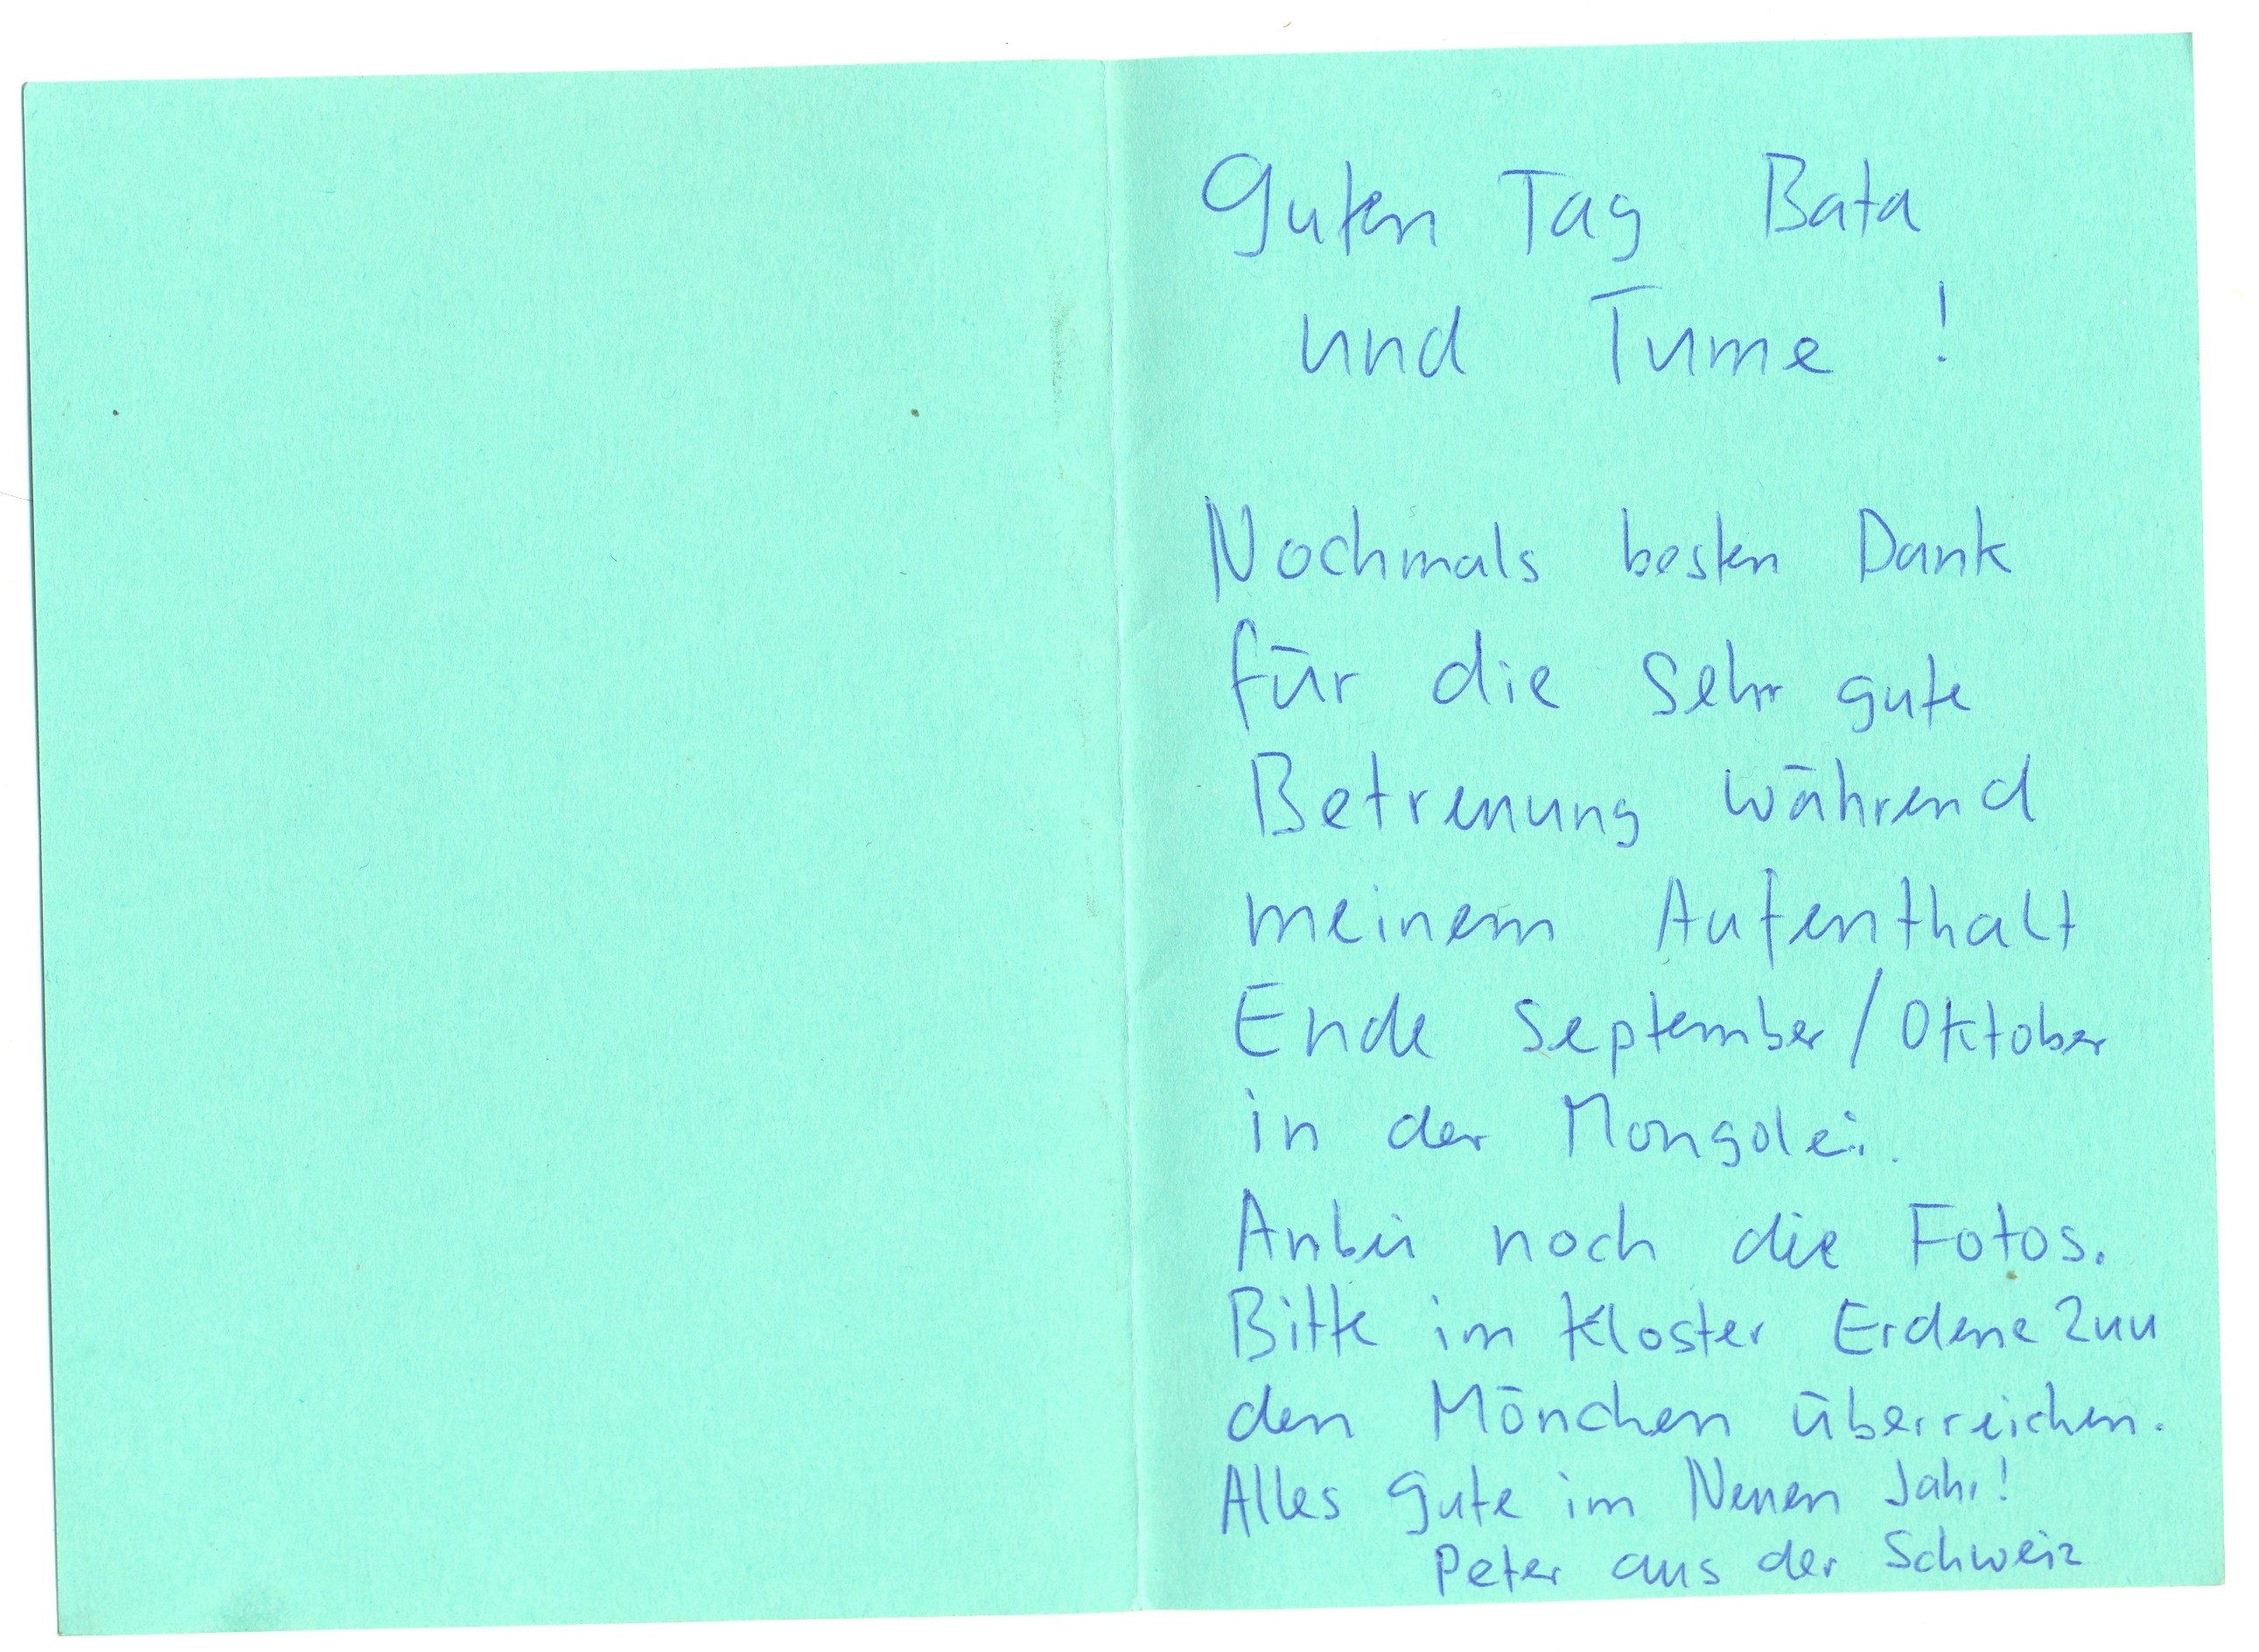 Guten Tag Bata
und Tume !
Nochmals besten Dank
für die sehr gute
Betreuung während
meinem Aufenthalt
Ende September / Oktober
in der Mongolei.
Anbei noch die Fotos.
Bitte im Kloster Erdene Zuu
den Mönchen überreichen.
Alles Gute im Neuen Jahr!
Peter aus der Schweiz